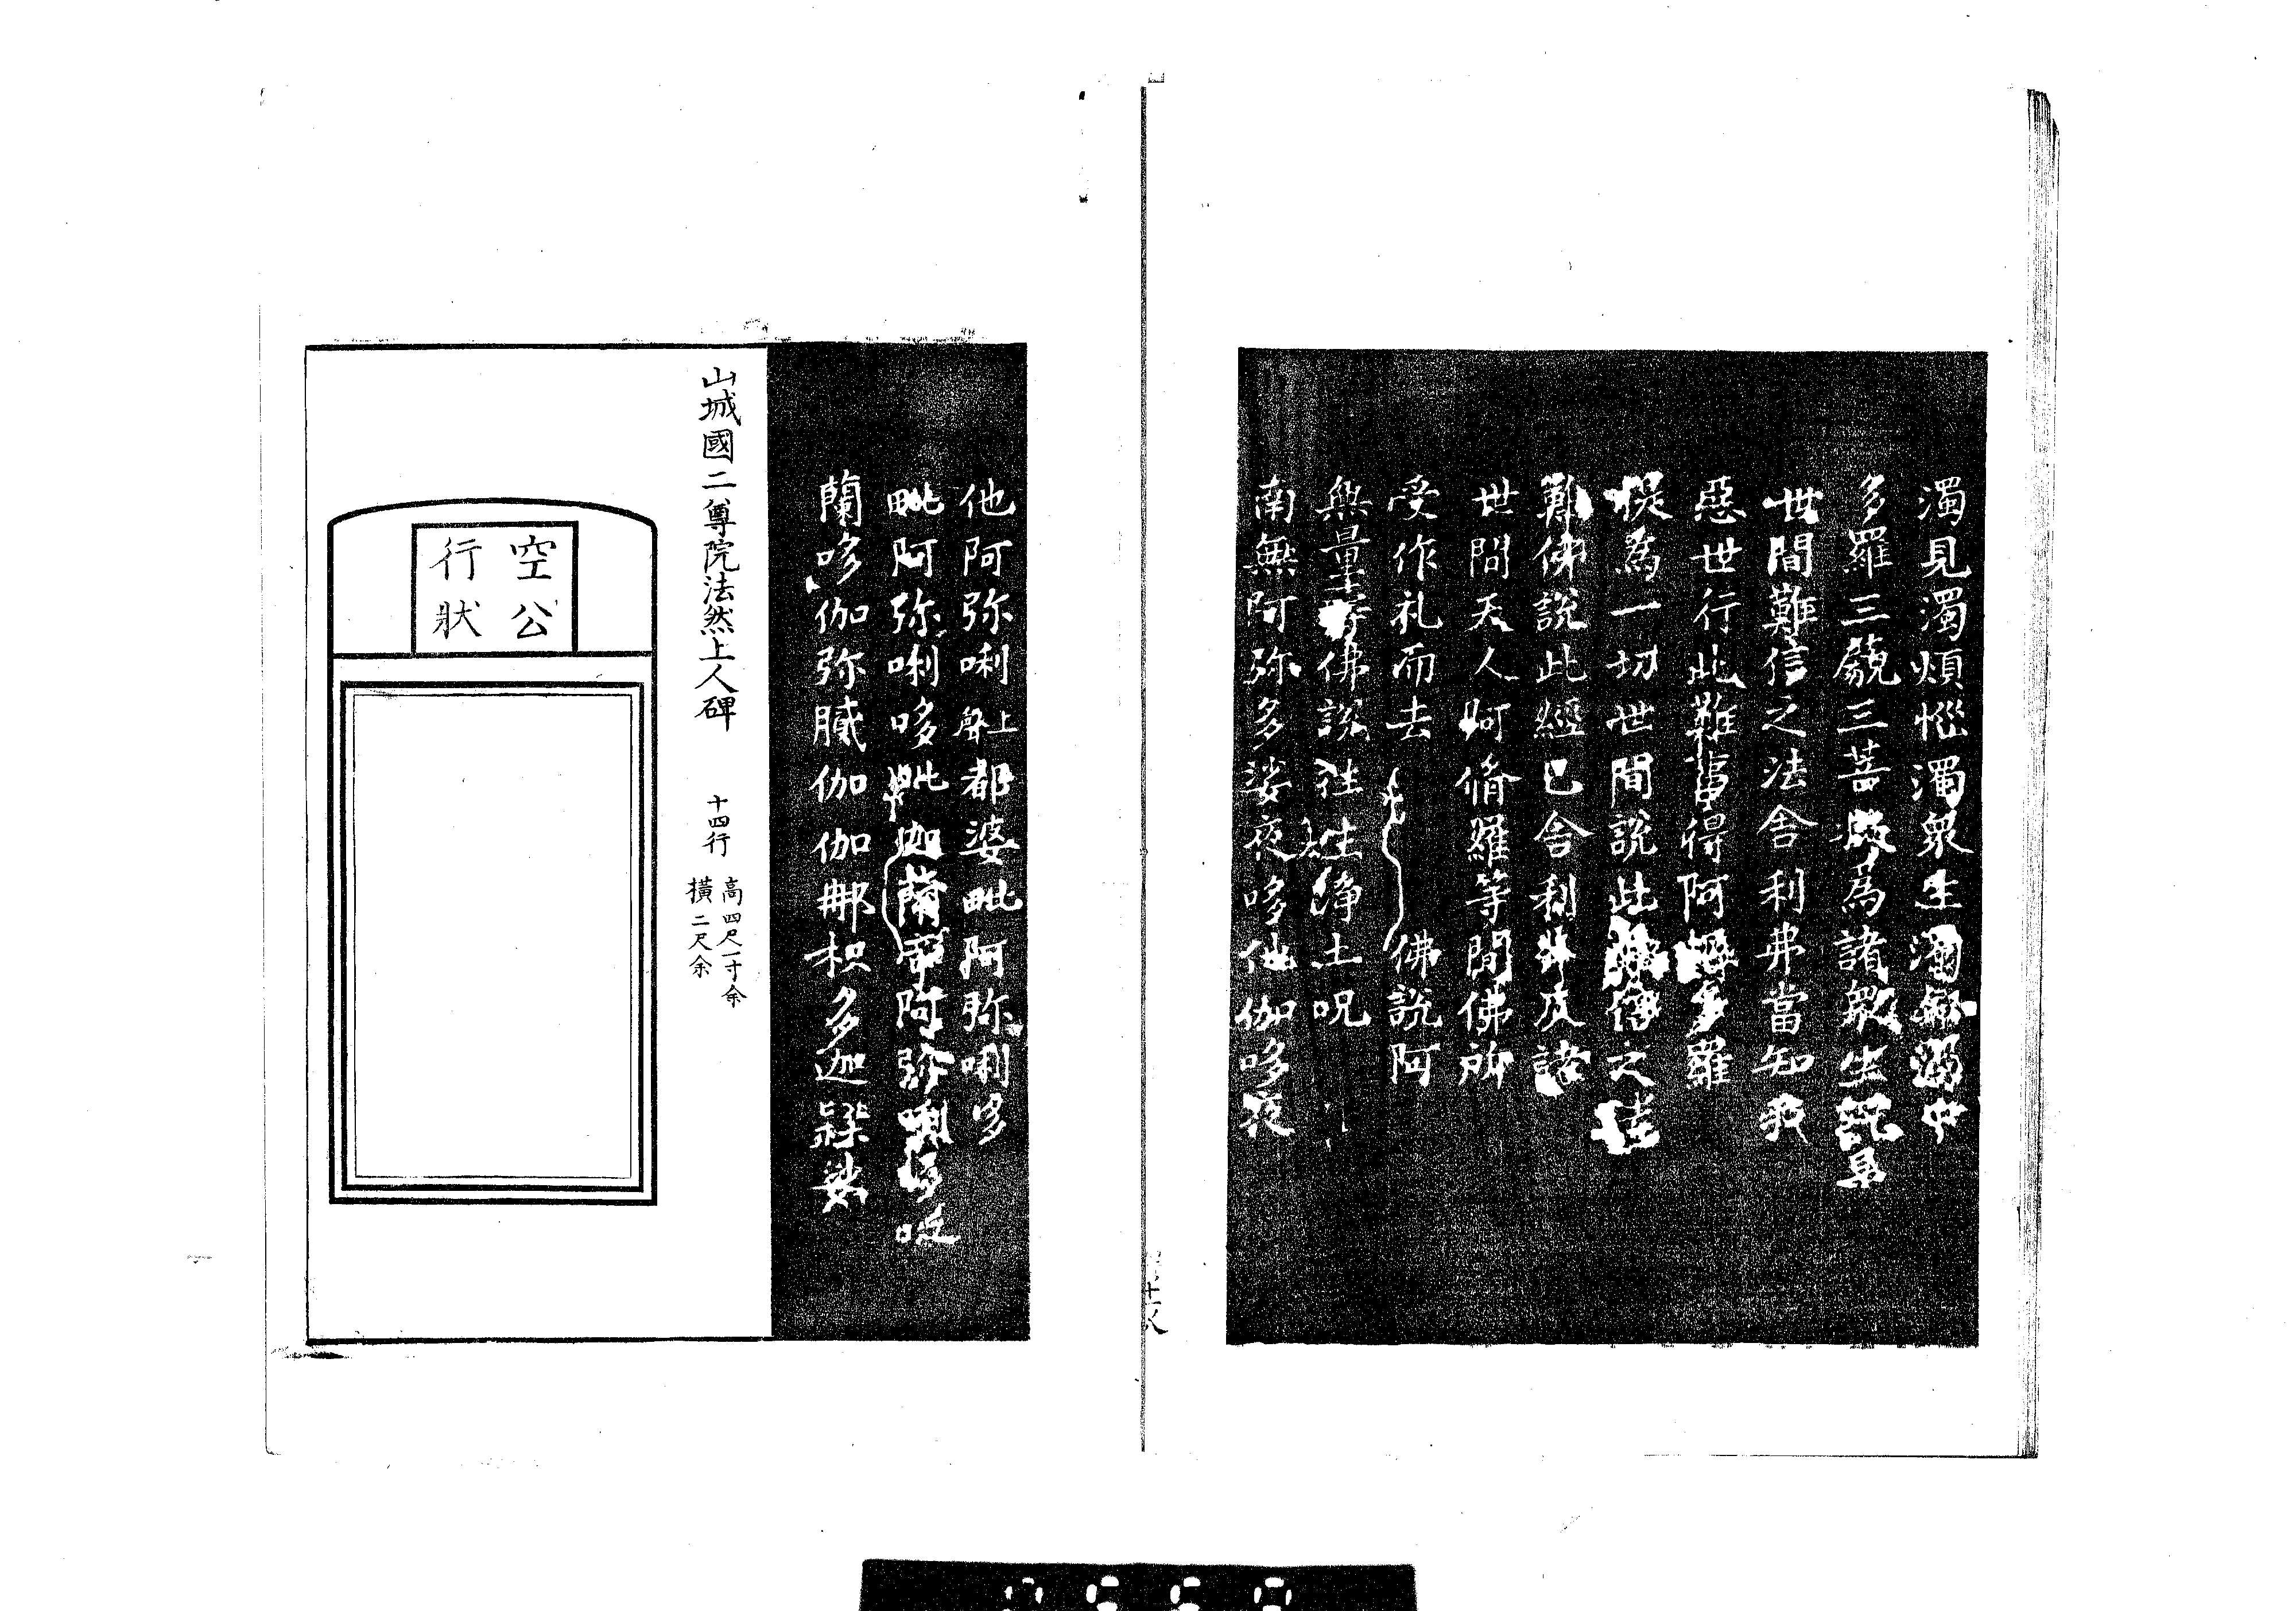 濁見濁煩惱濁衆生濁命濁中
多羅三藐三菩提為諸衆生說是
世間難信之法舍利弗當知我
惡世行此難事得阿耨多羅
提為一切世間說此難信之法
難佛說此經已舍利弗及諸
世間天人阿脩羅等聞佛所
受作礼而去 佛說阿
無量壽佛說往生淨土呪
南無阿弥多娑夜哆他伽哆夜
他阿弥唎上聲都婆毗阿弥唎哆
毗阿弥唎哆毗迦蘭帝阿弥唎哆毗
蘭哆伽弥膩伽伽那枳多迦隸娑
山城國二尊院法然上人碑 十四行 高四尺一寸余
横二尺余
空公
行狀